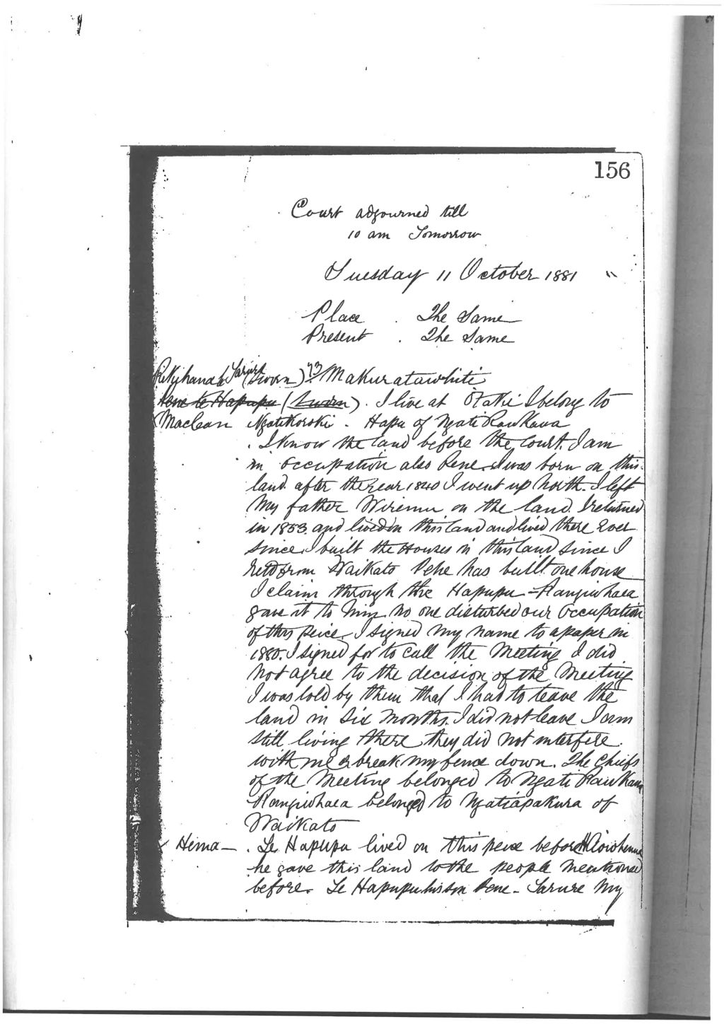 156
Court adjourned till
10 am Tomorrow
Tuesday 11 October 1881 "
Place . The Same
Present . The Same
(Sworn) Makuratawhiti
Pene te Hapupu (Sworn). I live at Otaki I belong to
Maclean Hapu of Ngati Raukawa
. I know the land before the Court. I am
in occupation also Pene. I was born on this
land after the year 1840 I went up North. I left
my father Wiremu on the land I returned
in 1853 and lived on this land and lived there ever
since I built the Houses in this land since I
from Waikato Pene has built one house
I claim through the Hapupu - Rangiwhaea
gave it to him no one disturbed our occupation
of this peice. I signed my name to a paper in
1880. I signed for to call the Meeting I did
not agree to the decision of the Meeting
I was told by them that I had to leave the
land in Six Months. I did not leave I am
still living there they did not interfere
with me or break my fence down. The Chiefs
of the Meeting belonged to Ngati Raukawa
Rangiwhaea belonged to Ngatiapakura of
Waikato
Hema - . Te Hapupu lived on this peice before
he gave this land to the people mentioned
before. Te Hapupu Pene - Tarure My